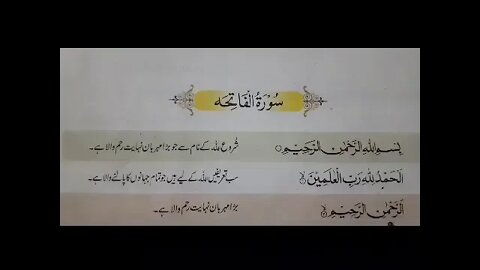 سُوْرَةُ الْفَاتِحَه
بِسْمِ اللّٰهِ الرَّحْمٰنِ الرَّحِيْمِ شروع اللہ کے نام سے جو بڑا مہربان نہایت رحم والا ہے۔
اَلْحَمْدُ لِلّٰهِ رَبِّ الْعٰلَمِيْنَ سب تعریفیں اللہ کے لیے ہیں جو تمام جہانوں کا پالنے والا ہے۔
الرَّحْمٰنِ الرَّحِيْمِ بڑا مہربان نہایت رحم والا ہے۔